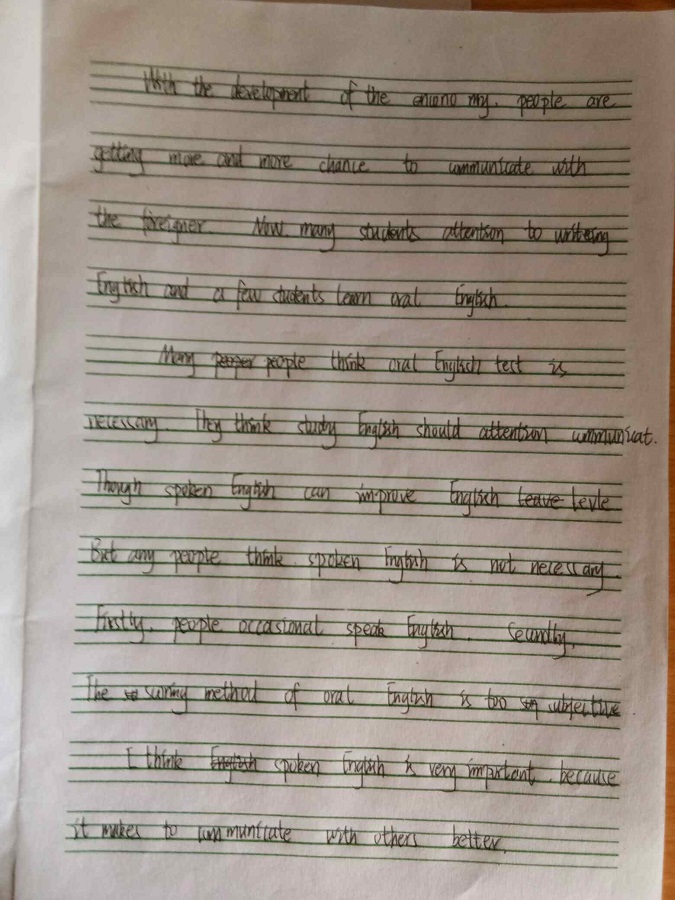 With the development of the eniono my, people are
getting more and more chance to communicate with
the foreigner. Now many students attention to writeing
English and a few students learn oral English.
Many people think oral English test is
necessary. They think study English should attention communicat.
Though spoken English can improve English levle
But any people think spoken English is not necessary.
Firstly, people occasional speak English. Secundly,
The method of oral English is too subjective
I think spoken English is very important. because
it makes to communicate with others better.